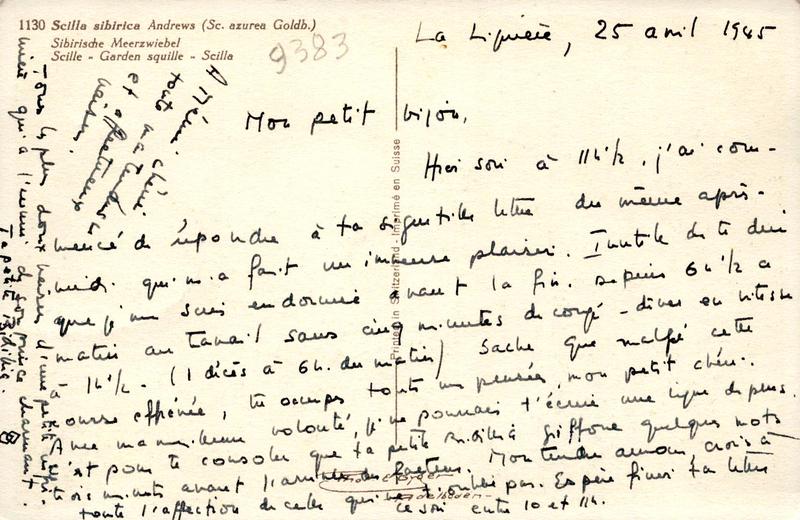 1130 Scilla sibirica Andrews (Sc. azurea Goldb.)
Sibirische Meerzwiebel
Scille - Garden squille - Scilla
9383
La Lignière, 25 avril 1945
Mon petit bijou,
Hier soir à 11h½, j'ai com-
mencé de répondre à ta si gentille lettre du même après-
midi qui m'a fait un immense plaisir. Inutile de te dire
que je me suis endormie avant la fin. Depuis 6h½ a
matin au travail sans cinq minutes de congé - dîner en vitesse
à 1h½. (1 décès à 6h. du matin) Sache que malgré cette
course effrénée, tu occupes toutes mes pensées, mon petit chéri.
Avec ma meilleure volonté, je ne pourrais t'écrire une ligne de plus.
C'est pour te consoler que ta petite giffone quelques mots
trois minutes avant l'arrivée du facteur. Mon tendre amour, crois à
toute l'affection de celle qui ne t'oublie pas. Espère finir ta lettre
ce soir entre 10 et 11h.
Tous les plus doux baisers d'une petite
qui a de son prince charmant.
Ta petite
A toi, mon
tout chéri
et affectueux
baisers.
Printed in Switzerland - Imprimé en Suisse
Adelboden